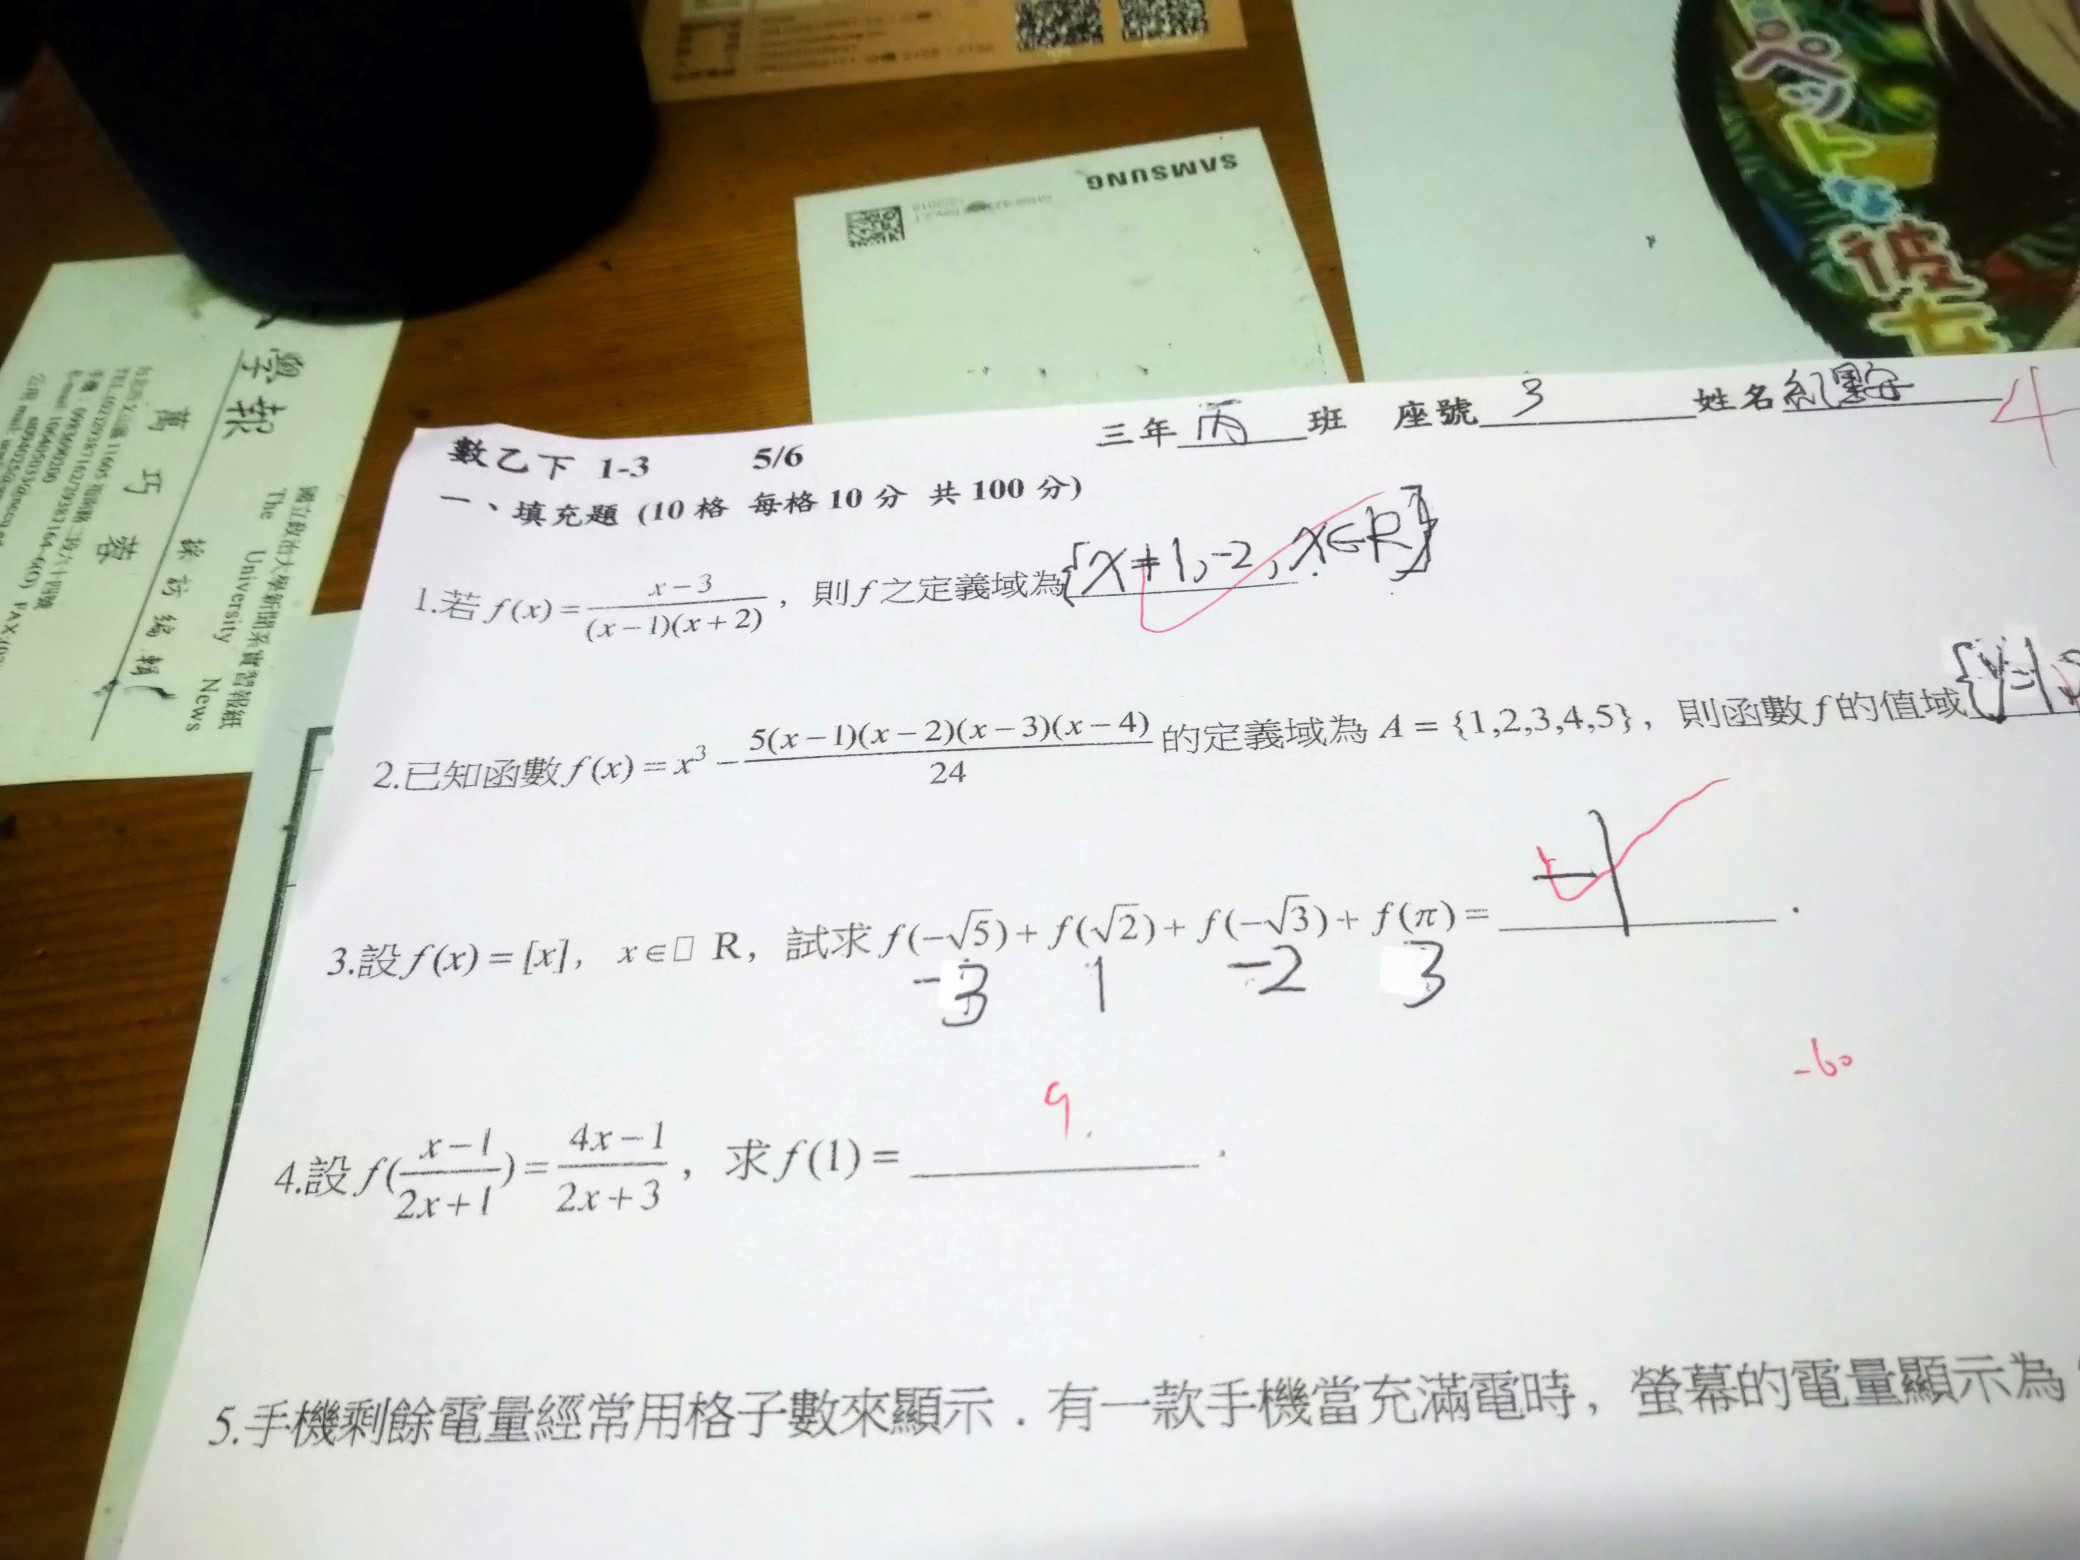 SAMSUNG
ペットな彼女
學報
萬巧蓉
採訪編輯
國立政治大學新聞系實習報紙
The University News
數乙下 1-3 5/6 三年丙班 座號 3 姓名
4
一、填充題 (10 格 每格 10 分 共 100 分)
1.若 f(x) = \frac{x-3}{(x-1)(x+2)}，則 f 之定義域為 {x≠1,-2, x∈R}.
2.已知函數 f(x) = x³ - \frac{5(x-1)(x-2)(x-3)(x-4)}{24} 的定義域為 A = {1,2,3,4,5}，則函數 f 的值域 {y=1,
3.設 f(x) = [x]， x∈□ R，試求 f(-√5) + f(√2) + f(-√3) + f(π) = -1 .
-3 1 -2 3
-60
9.
4.設 f(\frac{x-1}{2x+1}) = \frac{4x-1}{2x+3}，求 f(1) = .
5.手機剩餘電量經常用格子數來顯示．有一款手機當充滿電時，螢幕的電量顯示為